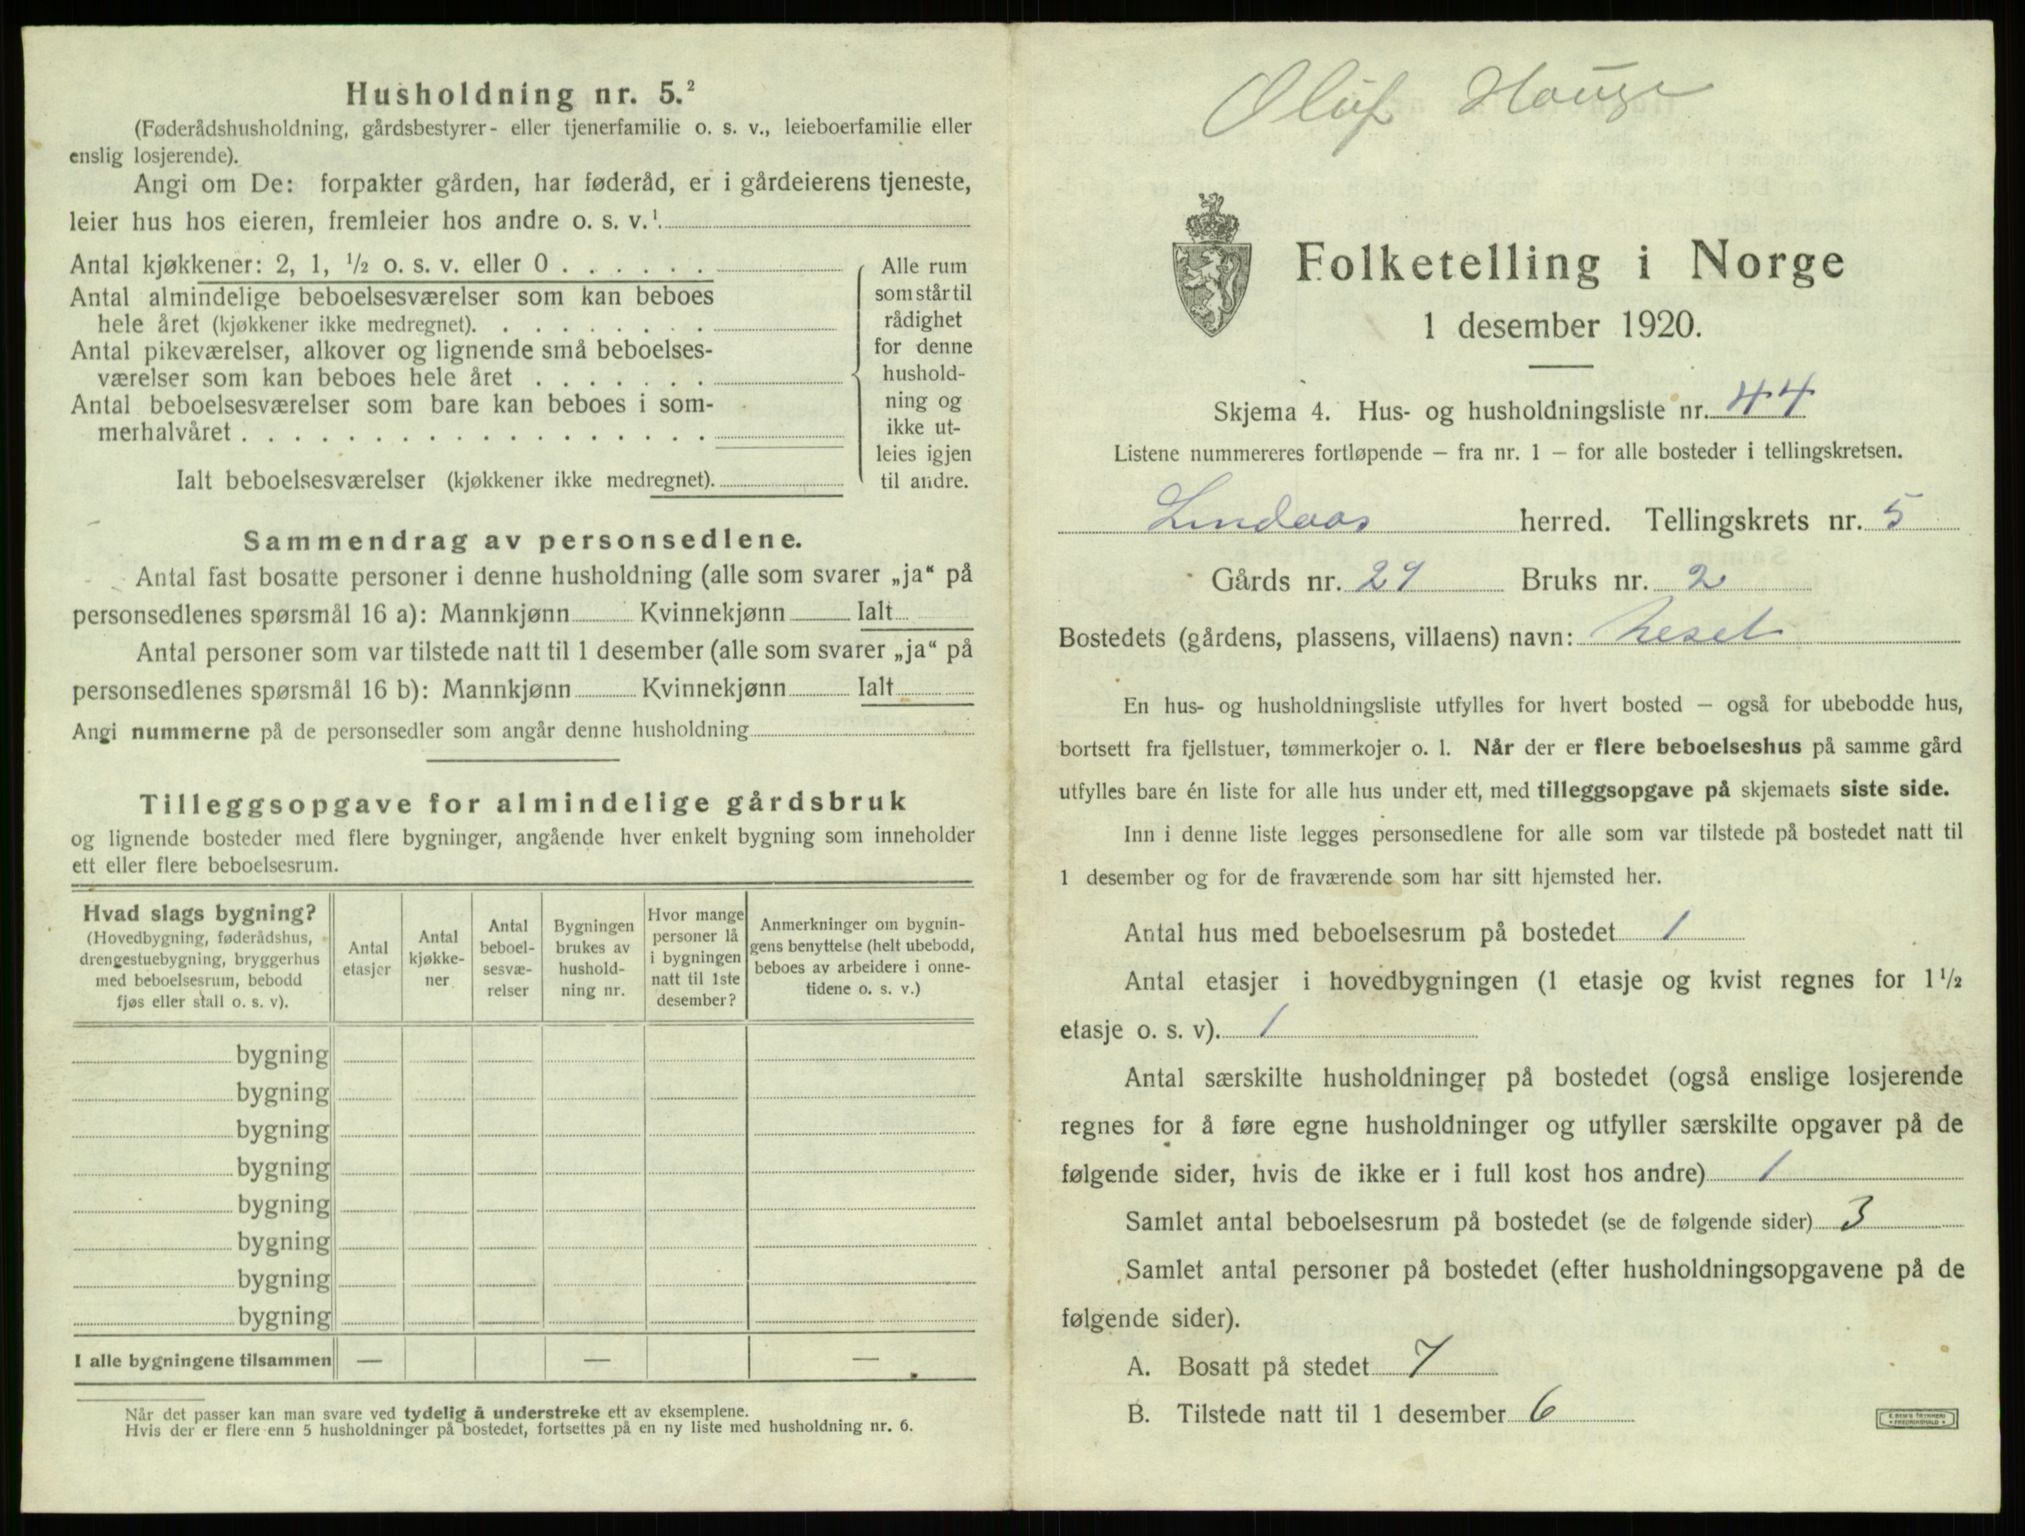 Husholdning nr. 5.²
(Føderådshusholdning, gårdsbestyrer- eller tjenerfamilie o. s. v., leieboerfamilie eller
enslig losjerende).
Angi om De: forpakter gården, har føderåd, er i gårdeierens tjeneste,
leier hus hos eieren, fremleier hos andre o. s. v.¹
Antal kjøkkener: 2, 1, ½ o. s. v. eller 0 . . . . . .
Antal almindelige beboelsesværelser som kan beboes
hele året (kjøkkener ikke medregnet). . . . . . . . .
Antal pikeværelser, alkover og lignende små beboelses-
værelser som kan beboes hele året . . . . . . .
Antal beboelsesværelser som bare kan beboes i som-
merhalvåret . . . . . . . . . . . . . . . . . .
Ialt beboelsesværelser (kjøkkener ikke medregnet).
Alle rum
som står til
rådighet
for denne
hushold-
ning og
ikke ut-
leies igjen
til andre.
Sammendrag av personsedlene.
Antal fast bosatte personer i denne husholdning (alle som svarer „ja“ på
personsedlenes spørsmål 16 a): Mannkjønn Kvinnekjønn Ialt
Antal personer som var tilstede natt til 1 desember (alle som svarer „ja“ på
personsedlenes spørsmål 16 b): Mannkjønn Kvinnekjønn Ialt
Angi nummerne på de personsedler som angår denne husholdning
Tilleggsopgave for almindelige gårdsbruk
og lignende bosteder med flere bygninger, angående hver enkelt bygning som inneholder
ett eller flere beboelsesrum.
Hvad slags bygning?
(Hovedbygning, føderådshus,
drengestuebygning, bryggerhus
med beboelsesrum, bebodd
fjøs eller stall o. s. v).
Antal
etasjer
Antal
kjøkke-
ner
Antal
beboel-
sesvæ-
relser
Bygningen
brukes av
hushold-
ning nr.
Hvor mange
personer lå
i bygningen
natt til 1ste
desember?
Anmerkninger om bygnin-
gens benyttelse (helt ubebodd,
beboes av arbeidere i onne-
tidene o. s. v.)
bygning
bygning
bygning
bygning
bygning
bygning
bygning
bygning
I alle bygningene tilsammen — — —
Når det passer kan man svare ved tydelig å understreke ett av eksemplene.
Hvis der er flere enn 5 husholdninger på bostedet, fortsettes på en ny liste med husholdning nr. 6.
Oluf Hauge
Folketelling i Norge
1 desember 1920.
Skjema 4. Hus- og husholdningsliste nr. 44
Listene nummereres fortløpende – fra nr. 1 – for alle bosteder i tellingskretsen.
Lindaas herred. Tellingskrets nr. 5
Gårds nr. 29 Bruks nr. 2
Bostedets (gårdens, plassens, villaens) navn:
En hus- og husholdningsliste utfylles for hvert bosted – også for ubebodde hus,
bortsett fra fjellstuer, tømmerkojer o. l. Når der er flere beboelseshus på samme gård
utfylles bare én liste for alle hus under ett, med tilleggsopgave på skjemaets siste side.
Inn i denne liste legges personsedlene for alle som var tilstede på bostedet natt til
1 desember og for de fraværende som har sitt hjemsted her.
Antal hus med beboelsesrum på bostedet 1
Antal etasjer i hovedbygningen (1 etasje og kvist regnes for 1 ½
etasje o. s. v). 1
Antal særskilte husholdninger på bostedet (også enslige losjerende
regnes for å føre egne husholdninger og utfyller særskilte opgaver på de
følgende sider, hvis de ikke er i full kost hos andre) 1
Samlet antal beboelsesrum på bostedet (se de følgende sider) 3
Samlet antal personer på bostedet (efter husholdningsopgavene på de
følgende sider).
A. Bosatt på stedet 7
B. Tilstede natt til 1 desember 6